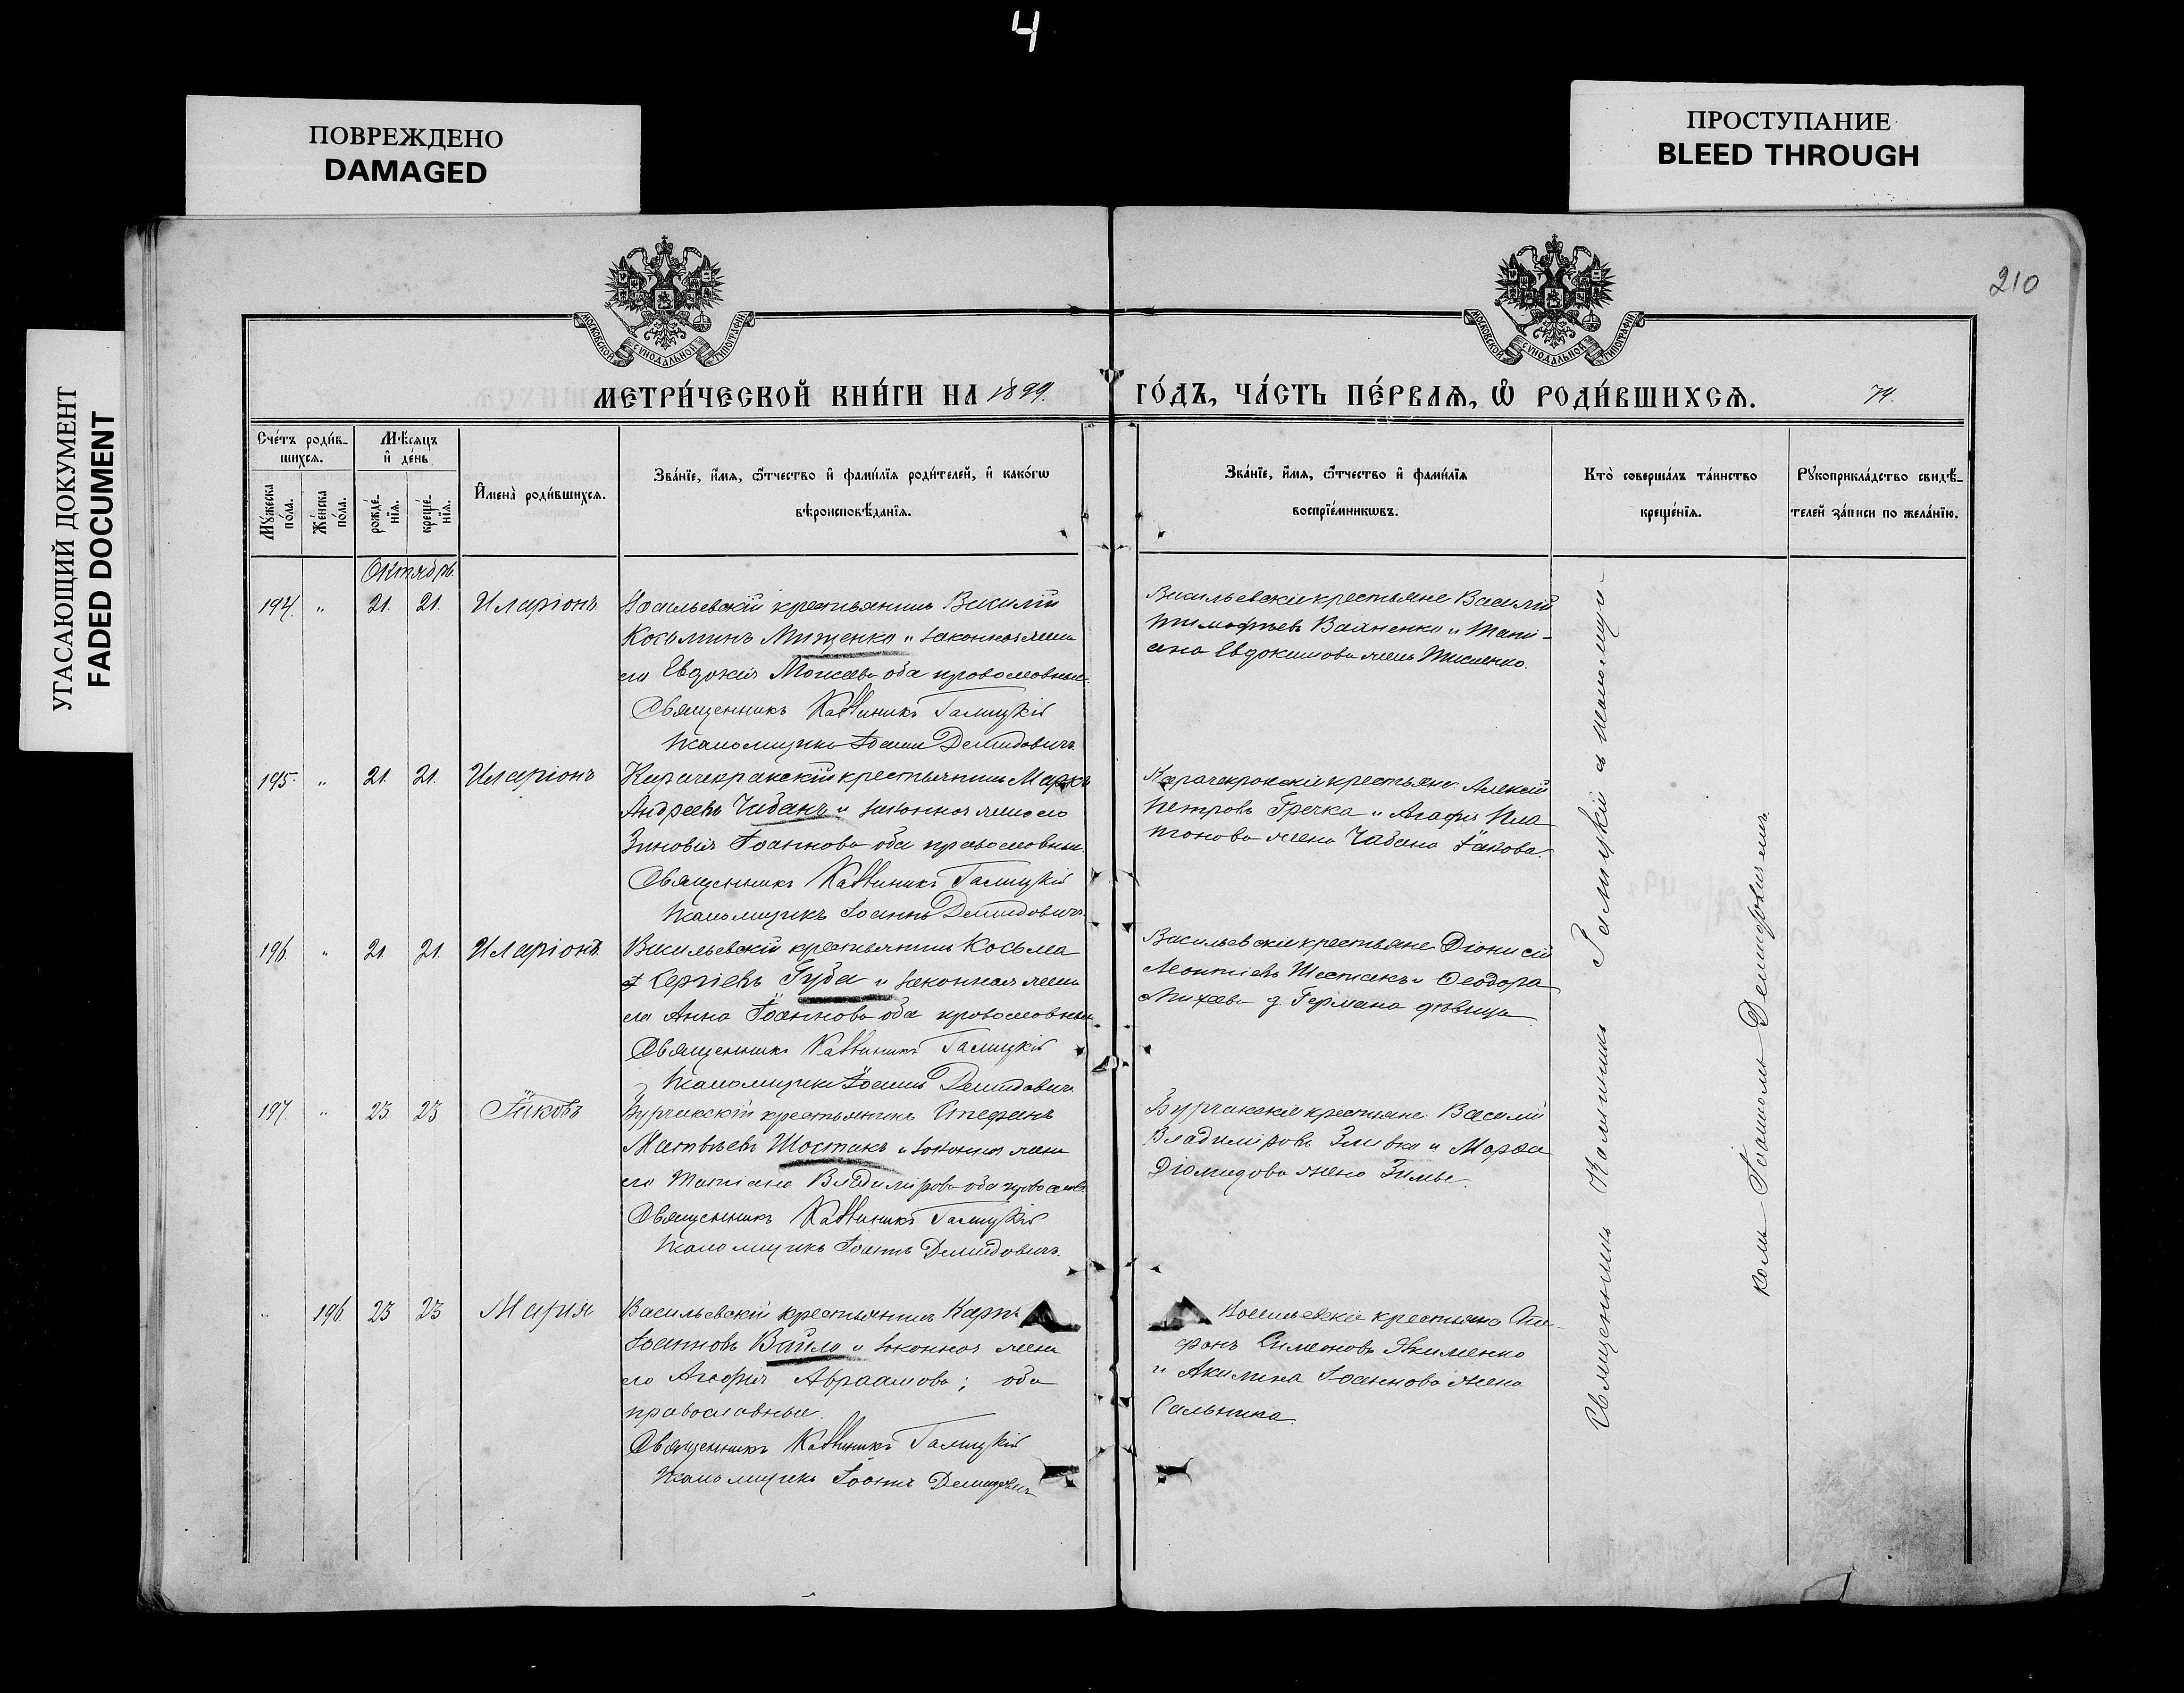 4
ПОВРЕЖДЕНО
DAMAGED
ПРОСТУПАНИЕ
BLEED THROUGH
УГАСАЮЩИЙ ДОКУМЕНТ
FADED DOCUMENT
210
МОСКОВСКОЙ СѴНОДАЛЬНОЙ ТИПОГРАФІИ
МОСКОВСКОЙ СѴНОДАЛЬНОЙ ТИПОГРАФІИ
МЕТРИ́ЧЕСКОЙ КНИ́ГИ НА 1899. ГО́ДЪ, ЧА́СТЬ ПЕ́РВАѦ, Ѡ҆ РОДИ́ВШИХСѦ. 74.
Сче́тъ роди́в-
шихсѧ.
Мꙋ́жеска по́ла.
Же́нска по́ла.
Мѣ́сѧцъ
и҆ де́нь
рожде́-нїѧ.
креще́-нїѧ.
И҆мена̀ роди́вшихсѧ.
Зва́нїе, и҆́мѧ, ѻ҆́тчество и҆ фами́лїѧ роди́телей, и҆ како́гѡ
вѣроисповѣ́данїѧ.
Зва́нїе, и҆́мѧ, ѻ҆́тчество и҆ фами́лїѧ
воспрїе́мникѡвъ.
Кто̀ соверша́лъ та́инство
креще́нїѧ.
Рꙋкоприкла́дство свидѣ́-
телей за́писи по жела́нїю.
Октябрь
194. " 21. 21. Иларіонъ
Васильевскій крестьянинъ Василій
Косминъ Мищенко и законная жена
его Евдокія Моисеева оба православные.
Священникъ Каллиникъ Галицкій
Псаломщикъ Іоаннъ Демидовичъ.
Васильевскіе крестьяне Василій
Тимофѣевъ Вайненко и Тати-
ана Евдокимова жена
195. " 21. 21. Иларіонъ
Карачекракскій крестьянинъ Маркъ
Андреевъ Чабанъ и законная жена его
Зиновія Іоаннова оба православные
Священникъ Каллиникъ Галицкій
Псаломщикъ Іоаннъ Демидовичъ.
Карачекракскіе крестьяне: Алексій
Петровъ Гречка и Агафія Пла-
тонова жена Чабана Іакова.
196. " 21. 21. Иларіонъ
Васильевскій крестьянинъ Косьма
Сергіевъ Губа и законная жена
его Анна Іоаннова оба православные
Священникъ Каллиникъ Галицкій
Псаломщикъ Іоаннъ Демидовичъ
Васильевскіе крестьяне Діонисій
Леонтіевъ Шестакъ и Ѳеодора
Михеева д. Германа дѣвица
197. " 23 23 Іаковъ
Бурчакскій крестьянинъ Стефанъ
Матвѣевъ Шостакъ и законная жена
его Татіана Владимірова оба правосл.
Священникъ Каллиникъ Галицкій
Псаломщикъ Іоаннъ Демидовичъ.
Бурчакскіе крестьяне: Василій
Владиміровъ и Марѳа
Діомидова жена Зимы.
" 196 23 23 Марія
Васильевскій крестьянинъ Карпъ
Іоанновъ Вайло и законная жена
его Агафія Авраамова; оба
православные.
Священникъ Каллиникъ Галицкій
Псаломщикъ Іоаннъ Демидовичъ
Васильевскіе крестьяне
Симеоновъ Якименко
и Акилина Іоаннова жена
Сальника.
Священникъ Каллиникъ Галицкій съ псаломщи-
комъ Іоанномъ Демидовичемъ.